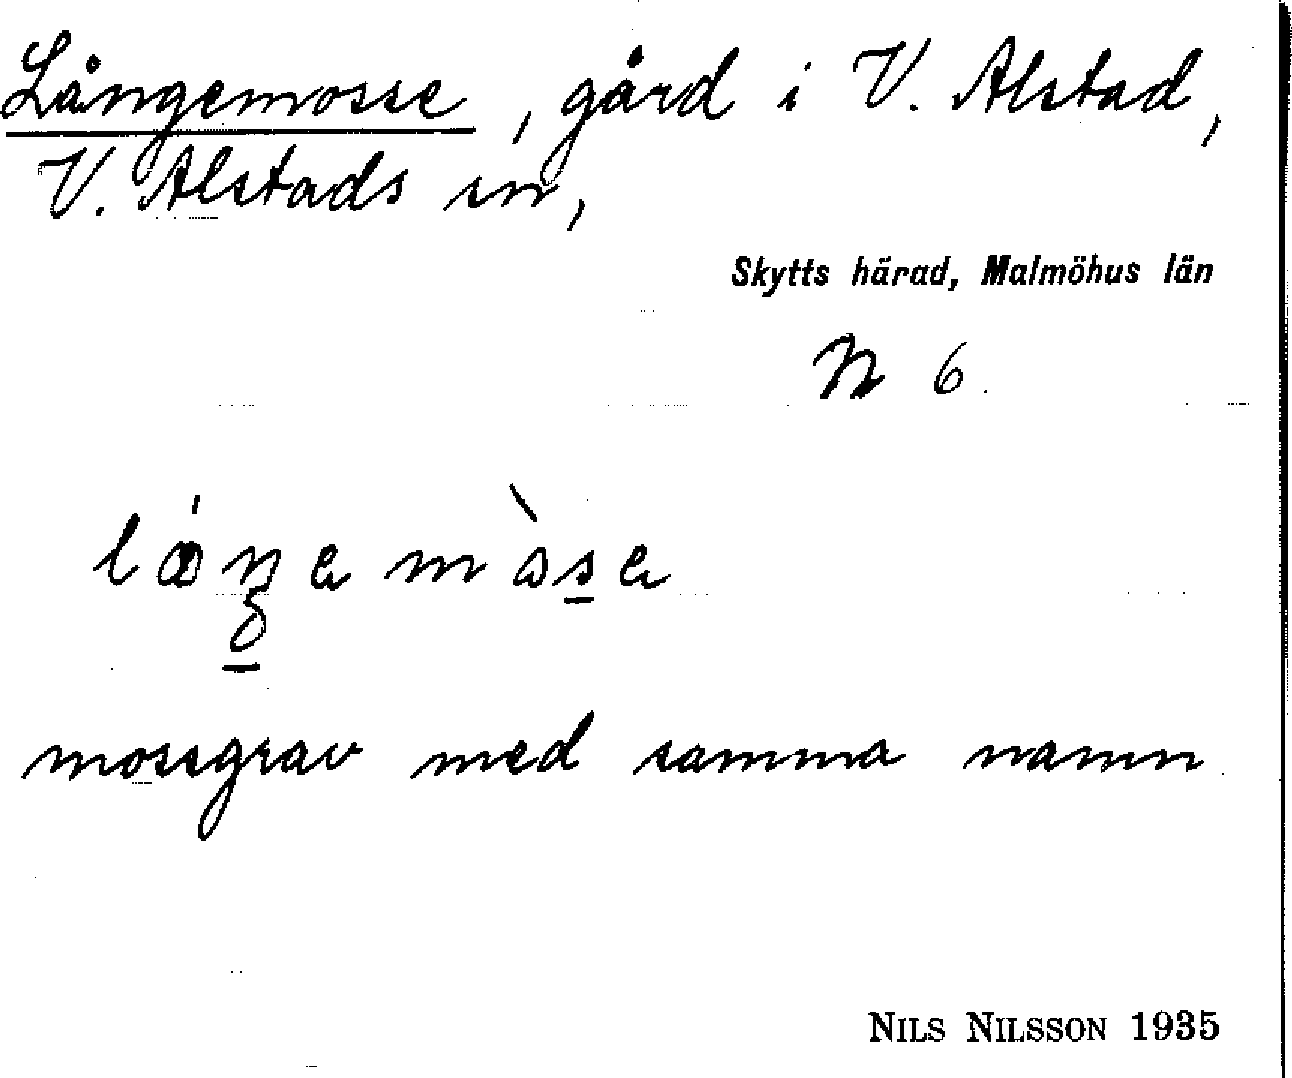 Långemosse, gård i V. Alstad,
V. Alstads sn,
Skytts härad, Malmöhus län
N 6.
mossgrav med samma namn
NILS NILSSON 1935